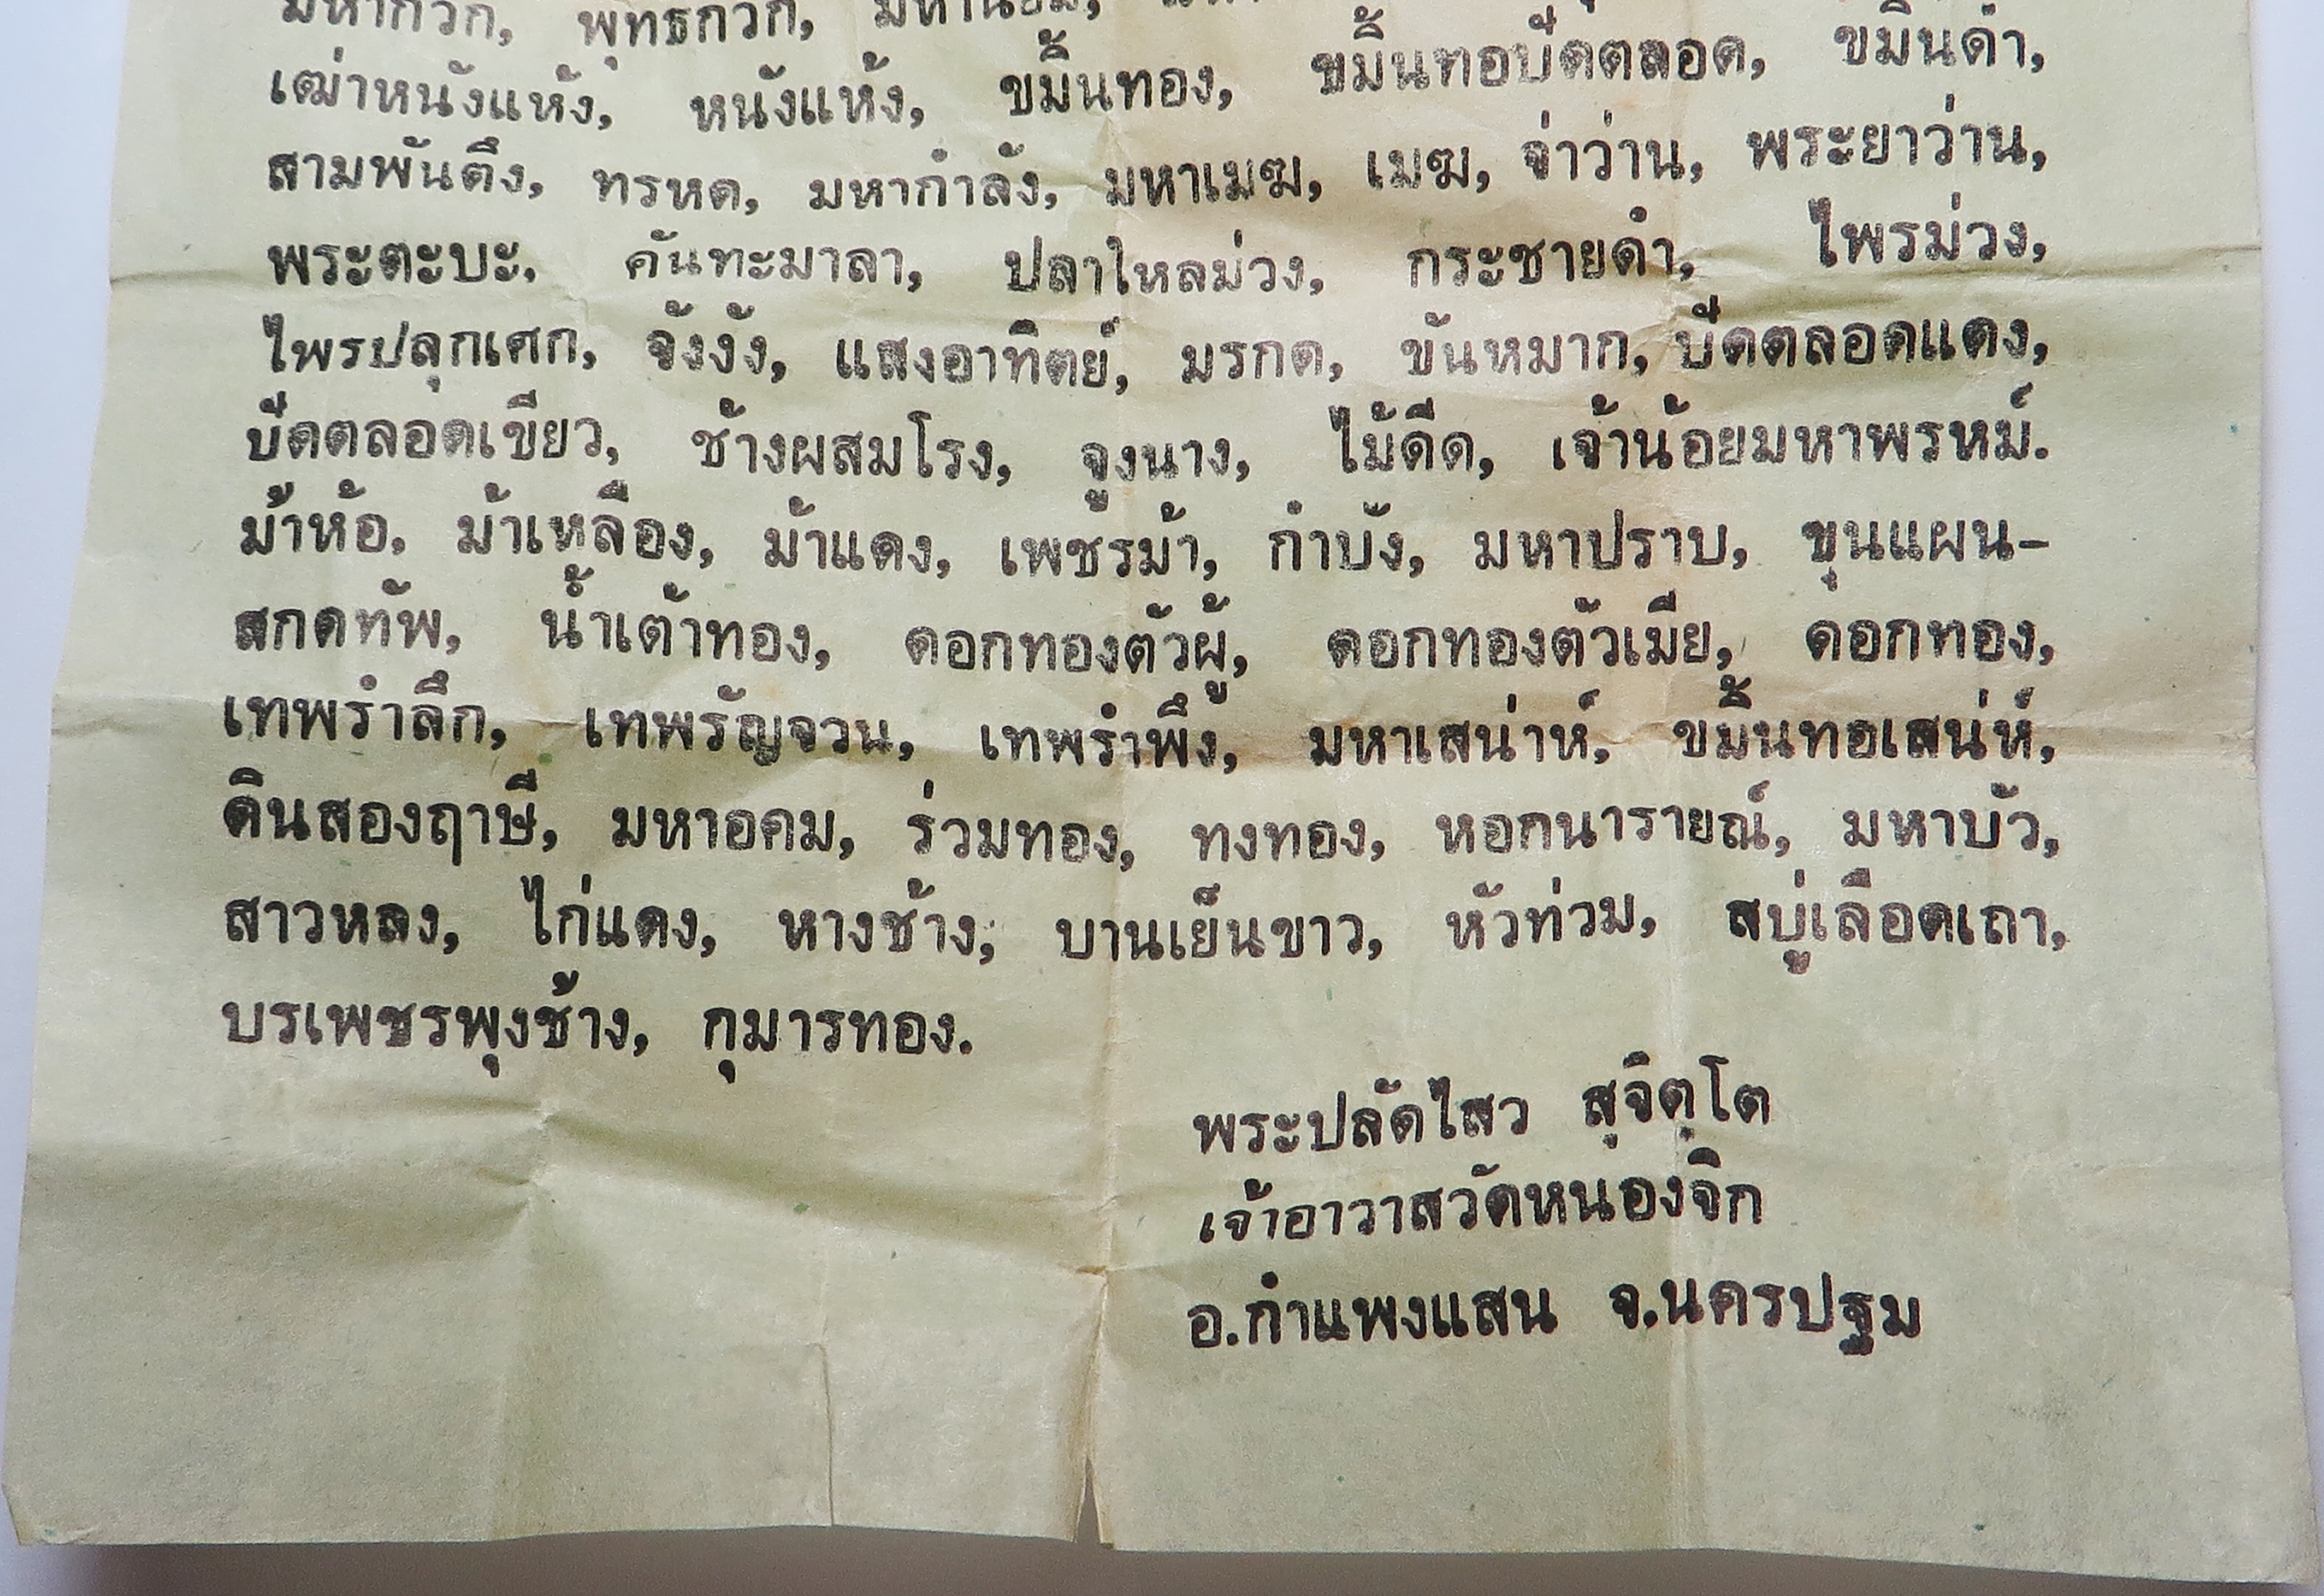 มหากวัก, พุทธกวัก, มหานิยม,
เฒ่าหนังแห้ง, หนังแห้ง, ขมิ้นทอง, ขมิ้นทอบืดตลอด, ขมิ้นดำ,
สามพันตึง, ทรหด, มหากำลัง, มหาเมฆ, เมฆ, จ่าว่าน, พระยาว่าน,
พระตะบะ, คันทะมาลา, ปลาไหลม่วง, กระชายดำ, ไพรม่วง,
ไพรปลุกเศก, จังงัง, แสงอาทิตย์, มรกด, ขันหมาก, บืดตลอดแดง,
บืดตลอดเขียว, ช้างผสมโรง, จูงนาง, ไม้ดีด, เจ้าน้อยมหาพรหม์.
ม้าห้อ, ม้าเหลือง, ม้าแดง, เพชรม้า, กำบัง, มหาปราบ, ขุนแผน-
สกดทัพ, น้ำเต้าทอง, ดอกทองตัวผู้, ดอกทองตัวเมีย, ดอกทอง,
เทพรำลึก, เทพรัญจวน, เทพรำพึง, มหาเสน่าห์, ขมิ้นทอเสน่ห์,
ดินสองฤาษี, มหาอุดม, ร่วมทอง, ทงทอง, หอกนารายณ์, มหาบัว,
สาวหลง, ไก่แดง, หางช้าง, บานเย็นขาว, หัวท่วม, สบู่เลือดเถา,
บรเพชรพุงช้าง, กุมารทอง.
พระปลัดไสว สุจิตฺโต
เจ้าอาวาสวัดหนองจิก
อ.กำแพงแสน จ.นครปฐม